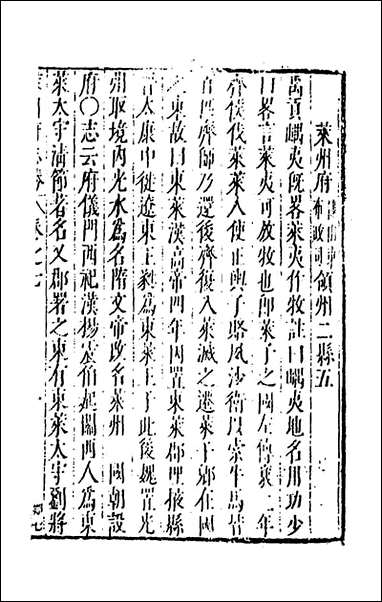 萊州府 布政司 領州二縣五
禹貢嵎夷既畧萊夷作牧註曰嵎夷地名用功少
曰畧言萊夷可放牧也卽萊子之國左傳襄二年
齊侯伐萊萊人使正輿子賂夙沙衛以索牛馬皆
百匹齊師乃還後齊復入萊滅之遷萊于郳在國
之東故曰東萊漢高帝四年因置東萊郡理掖縣
晉太康中從遼東王㽔爲東萊王于此後魏置光
州取境內光水爲名隋文帝改名萊州 國朝設
府〇志云府儀門西祀漢楊震伯起關西人爲東
萊太守淸節者名又郡署之東有東萊太守劉將